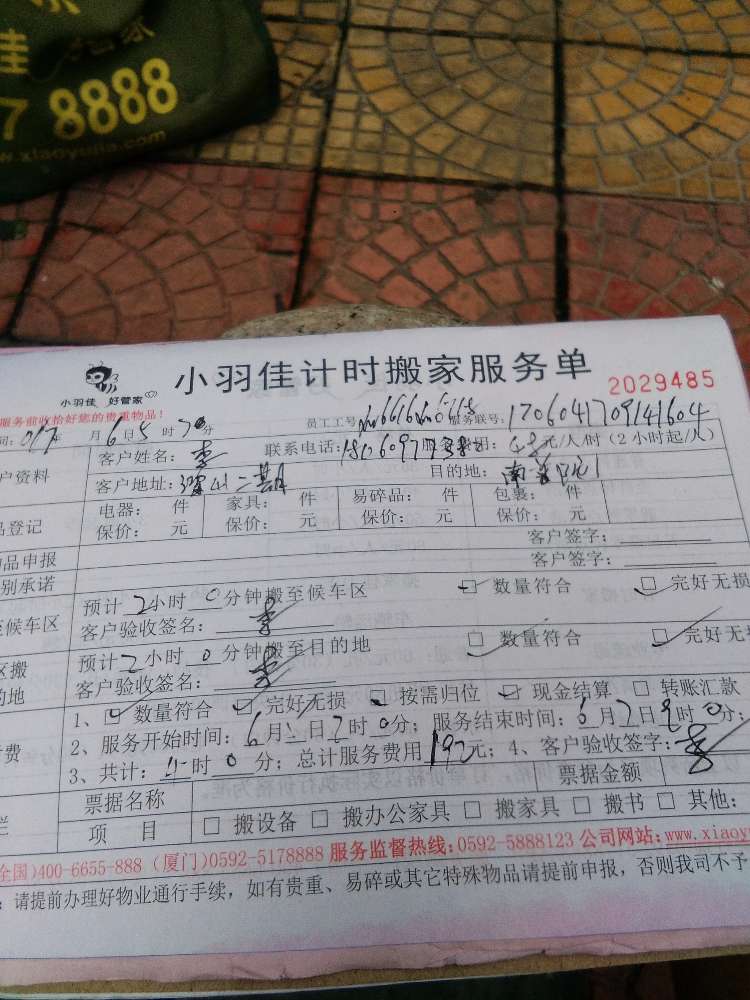 佳
7 8888
www.xiaoyujia.com
小羽佳 好管家
小羽佳计时搬家服务单
2029485
服务前收拾好您的贵重物品!
员工工号: 服务联号: 1706041709141604
月 6 日 5 时 分
客户姓名: 李 联系电话: 元/人/时(2小时起/人)
户资料
客户地址: 二期 目的地: 南
电器: 件 家具: 件 易碎品: 件 包裹: 件
品登记
保价: 元 保价: 元 保价: 元 保价: 元
物品申报 客户签字:
别承诺 客户签字:
预计 2 小时 0 分钟搬至候车区 数量符合 完好无损
至候车区
客户验收签名: 李
预计 2 小时 0 分钟搬至目的地 数量符合 完好无损
区搬
的地
客户验收签名: 李
1、 数量符合 完好无损 按需归位 现金结算 转账汇款
2、服务开始时间: 6 月 日 2 时 0 分; 服务结束时间: 6 月 2 日 时 0 分;
付费
3、共计: 时 0 分; 总计服务费用 192 元; 4、客户验收签字: 李
票据名称 票据金额
栏
项 目 搬设备 搬办公家具 搬家具 搬书 其他:
全国)400-6655-888 (厦门)0592-5178888 服务监督热线:0592-5888123 公司网站:www.xiaoy
:请提前办理好物业通行手续,如有贵重、易碎或其它特殊物品请提前申报,否则我司不予